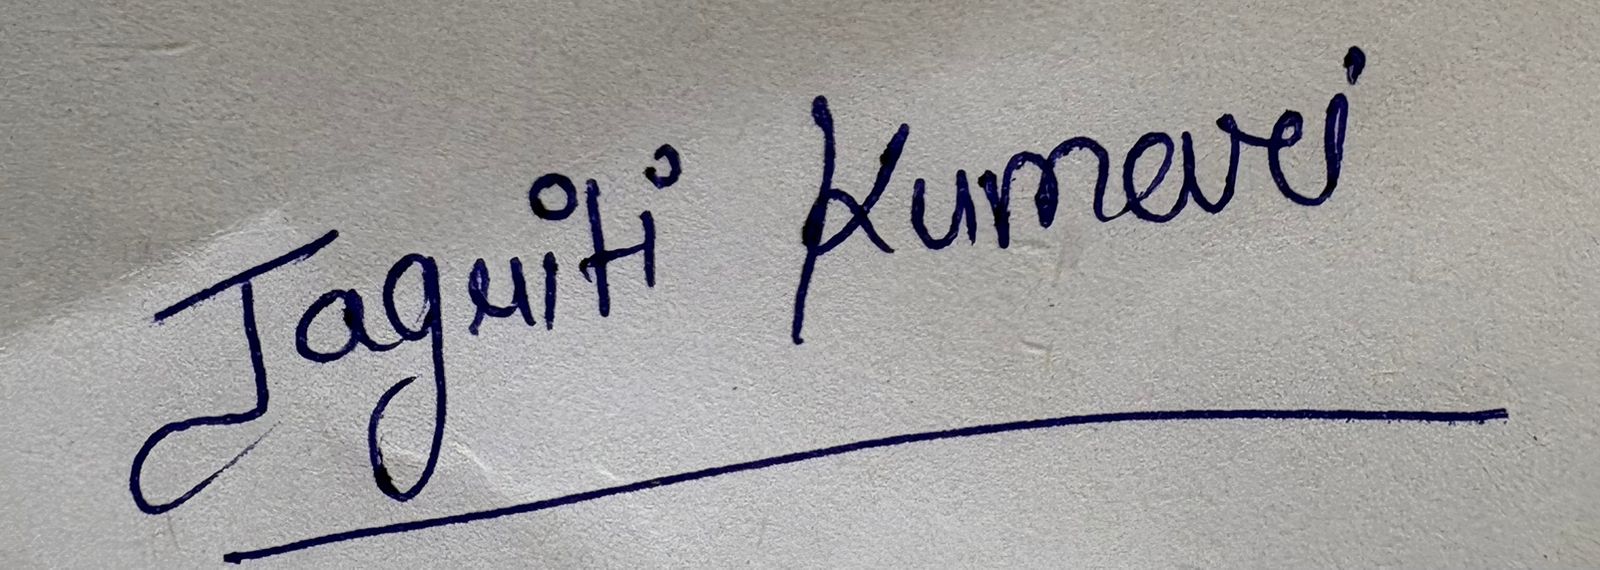 Jagriti Kumari